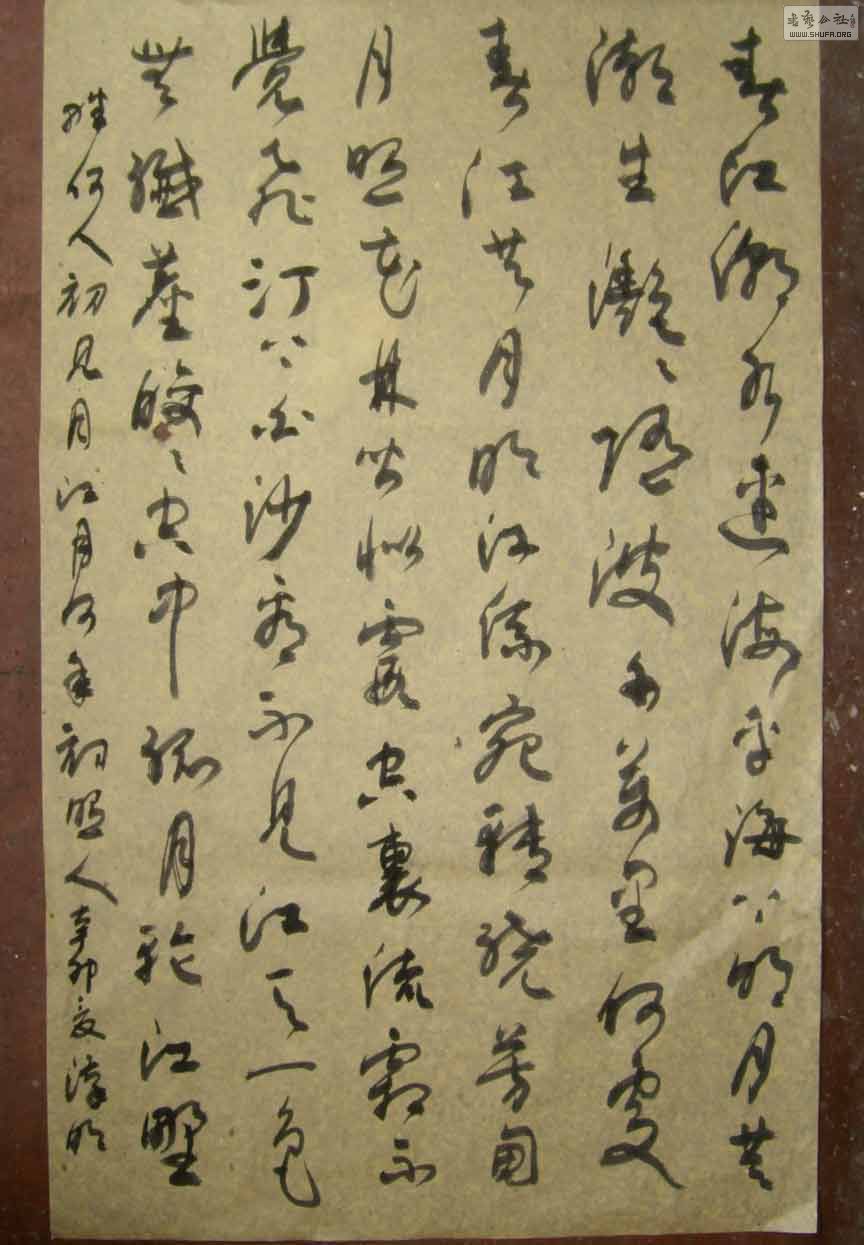 春江潮水連海平海上明月共
潮生灧〻隨波千萬里何處
春江無月明江流宛轉繞芳甸
月照花林皆似霰空裏流霜不
覺飛汀上白沙看不見江天一色
無纖塵皎〻空中孤月輪江
畔何人初見月江月何年初照人辛卯夏
书艺公社
WWW.SHUFA.ORG